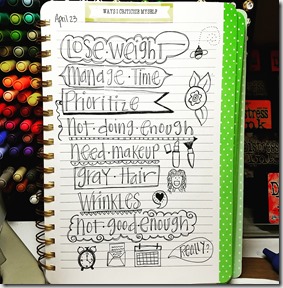 WAYS I CRITICIZE MYSELF
April 23
Lose weight
Manage Time
Prioritize
Not doing enough
Need makeup
Gray Hair
Wrinkles
Not good enough
REALLY?